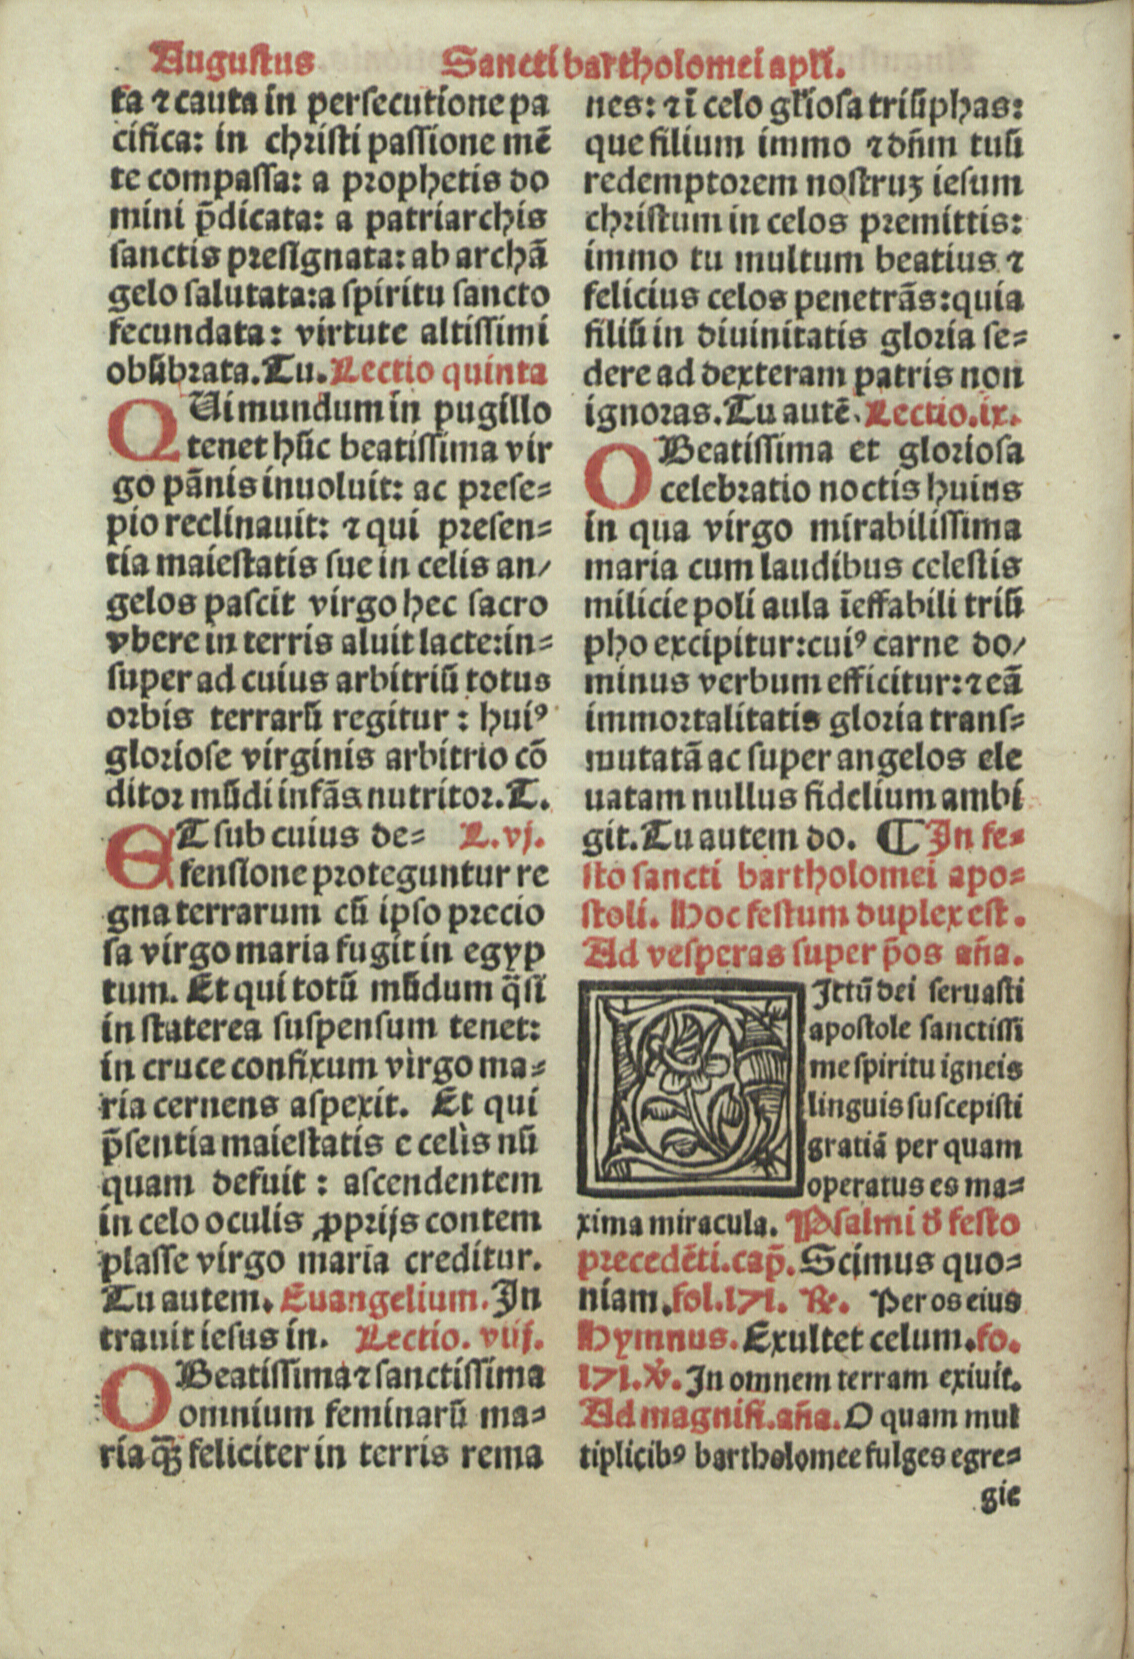 Augustus Sancti bartholomei apłi.
ta ⁊ cauta in persecutione pa
cifica: in christi passione mē
te compassa: a prophetis do
mini p̄dicata: a patriarchis
sanctis presignata: ab archā
gelo salutata: a spiritu sancto
fecundata: virtute altissimi
obūbrata. Tu. Lectio quinta
QUi mundum in pugillo
tenet hūc beatissima vir
go pānis inuoluit: ac prese=
pio reclinauit: ⁊ qui presen=
tia maiestatis sue in celis an/
gelos pascit virgo hec sacro
vbere in terris aluit lacte: in=
super ad cuius arbitriū totus
orbis terrarū regitur: huiꝰ
gloriose virginis arbitrio cō
ditor mūdi infās nutritor. T.
ET sub cuius de= L.vj.
fensione proteguntur re
gna terrarum cū ipso precio
sa virgo maria fugit in egyp
tum. Et qui totū mūdum q̄si
in staterea suspensum tenet:
in cruce confixum virgo ma=
ria cernens aspexit. Et qui
p̄sentia maiestatis e celis nū
quam defuit: ascendentem
in celo oculis ꝓprijs contem
plasse virgo maria creditur.
Tu autem. Euangelium. In
trauit iesus in. Lectio. viij.
O Beatissima ⁊ sanctissima
omnium feminarū ma=
ria q̄ꝫ feliciter in terris rema
nes: ⁊ ī celo gl̄iosa triūphas:
que filium immo ⁊ dn̄m tuū
redemptorem nostruꝫ iesum
christum in celos premittis:
immo tu multum beatius ⁊
felicius celos penetrās: quia
filiū in diuinitatis gloria se=
dere ad dexteram patris non
ignoras. Tu autē. Lectio. ix.
O Beatissima et gloriosa
celebratio noctis huius
in qua virgo mirabilissima
maria cum laudibus celestis
milicie poli aula īeffabili triū
pho excipitur: cuiꝰ carne do/
minus verbum efficitur: ⁊ eā
immortalitatis gloria trans=
mutatā ac super angelos ele
uatam nullus fidelium ambi
git. Tu autem do. ¶ In fe=
sto sancti bartholomei apo=
stoli. Hoc festum duplex est.
Ad vesperas super p̄os an̄a.
Ittū dei seruasti
apostole sanctissi
me spiritu igneis
linguis suscepisti
gratiā per quam
operatus es ma=
xima miracula. Psalmi đ festo
precedēti. cap̄. Scimus quo=
niam. fol. 171. ℞. Per os eius
Hymnus. Exultet celum. fo.
171. ℣. In omnem terram exiuit.
Ad magnifi. an̄a. O quam mul
tiplicibꝰ bartholomee fulges egre=
gie